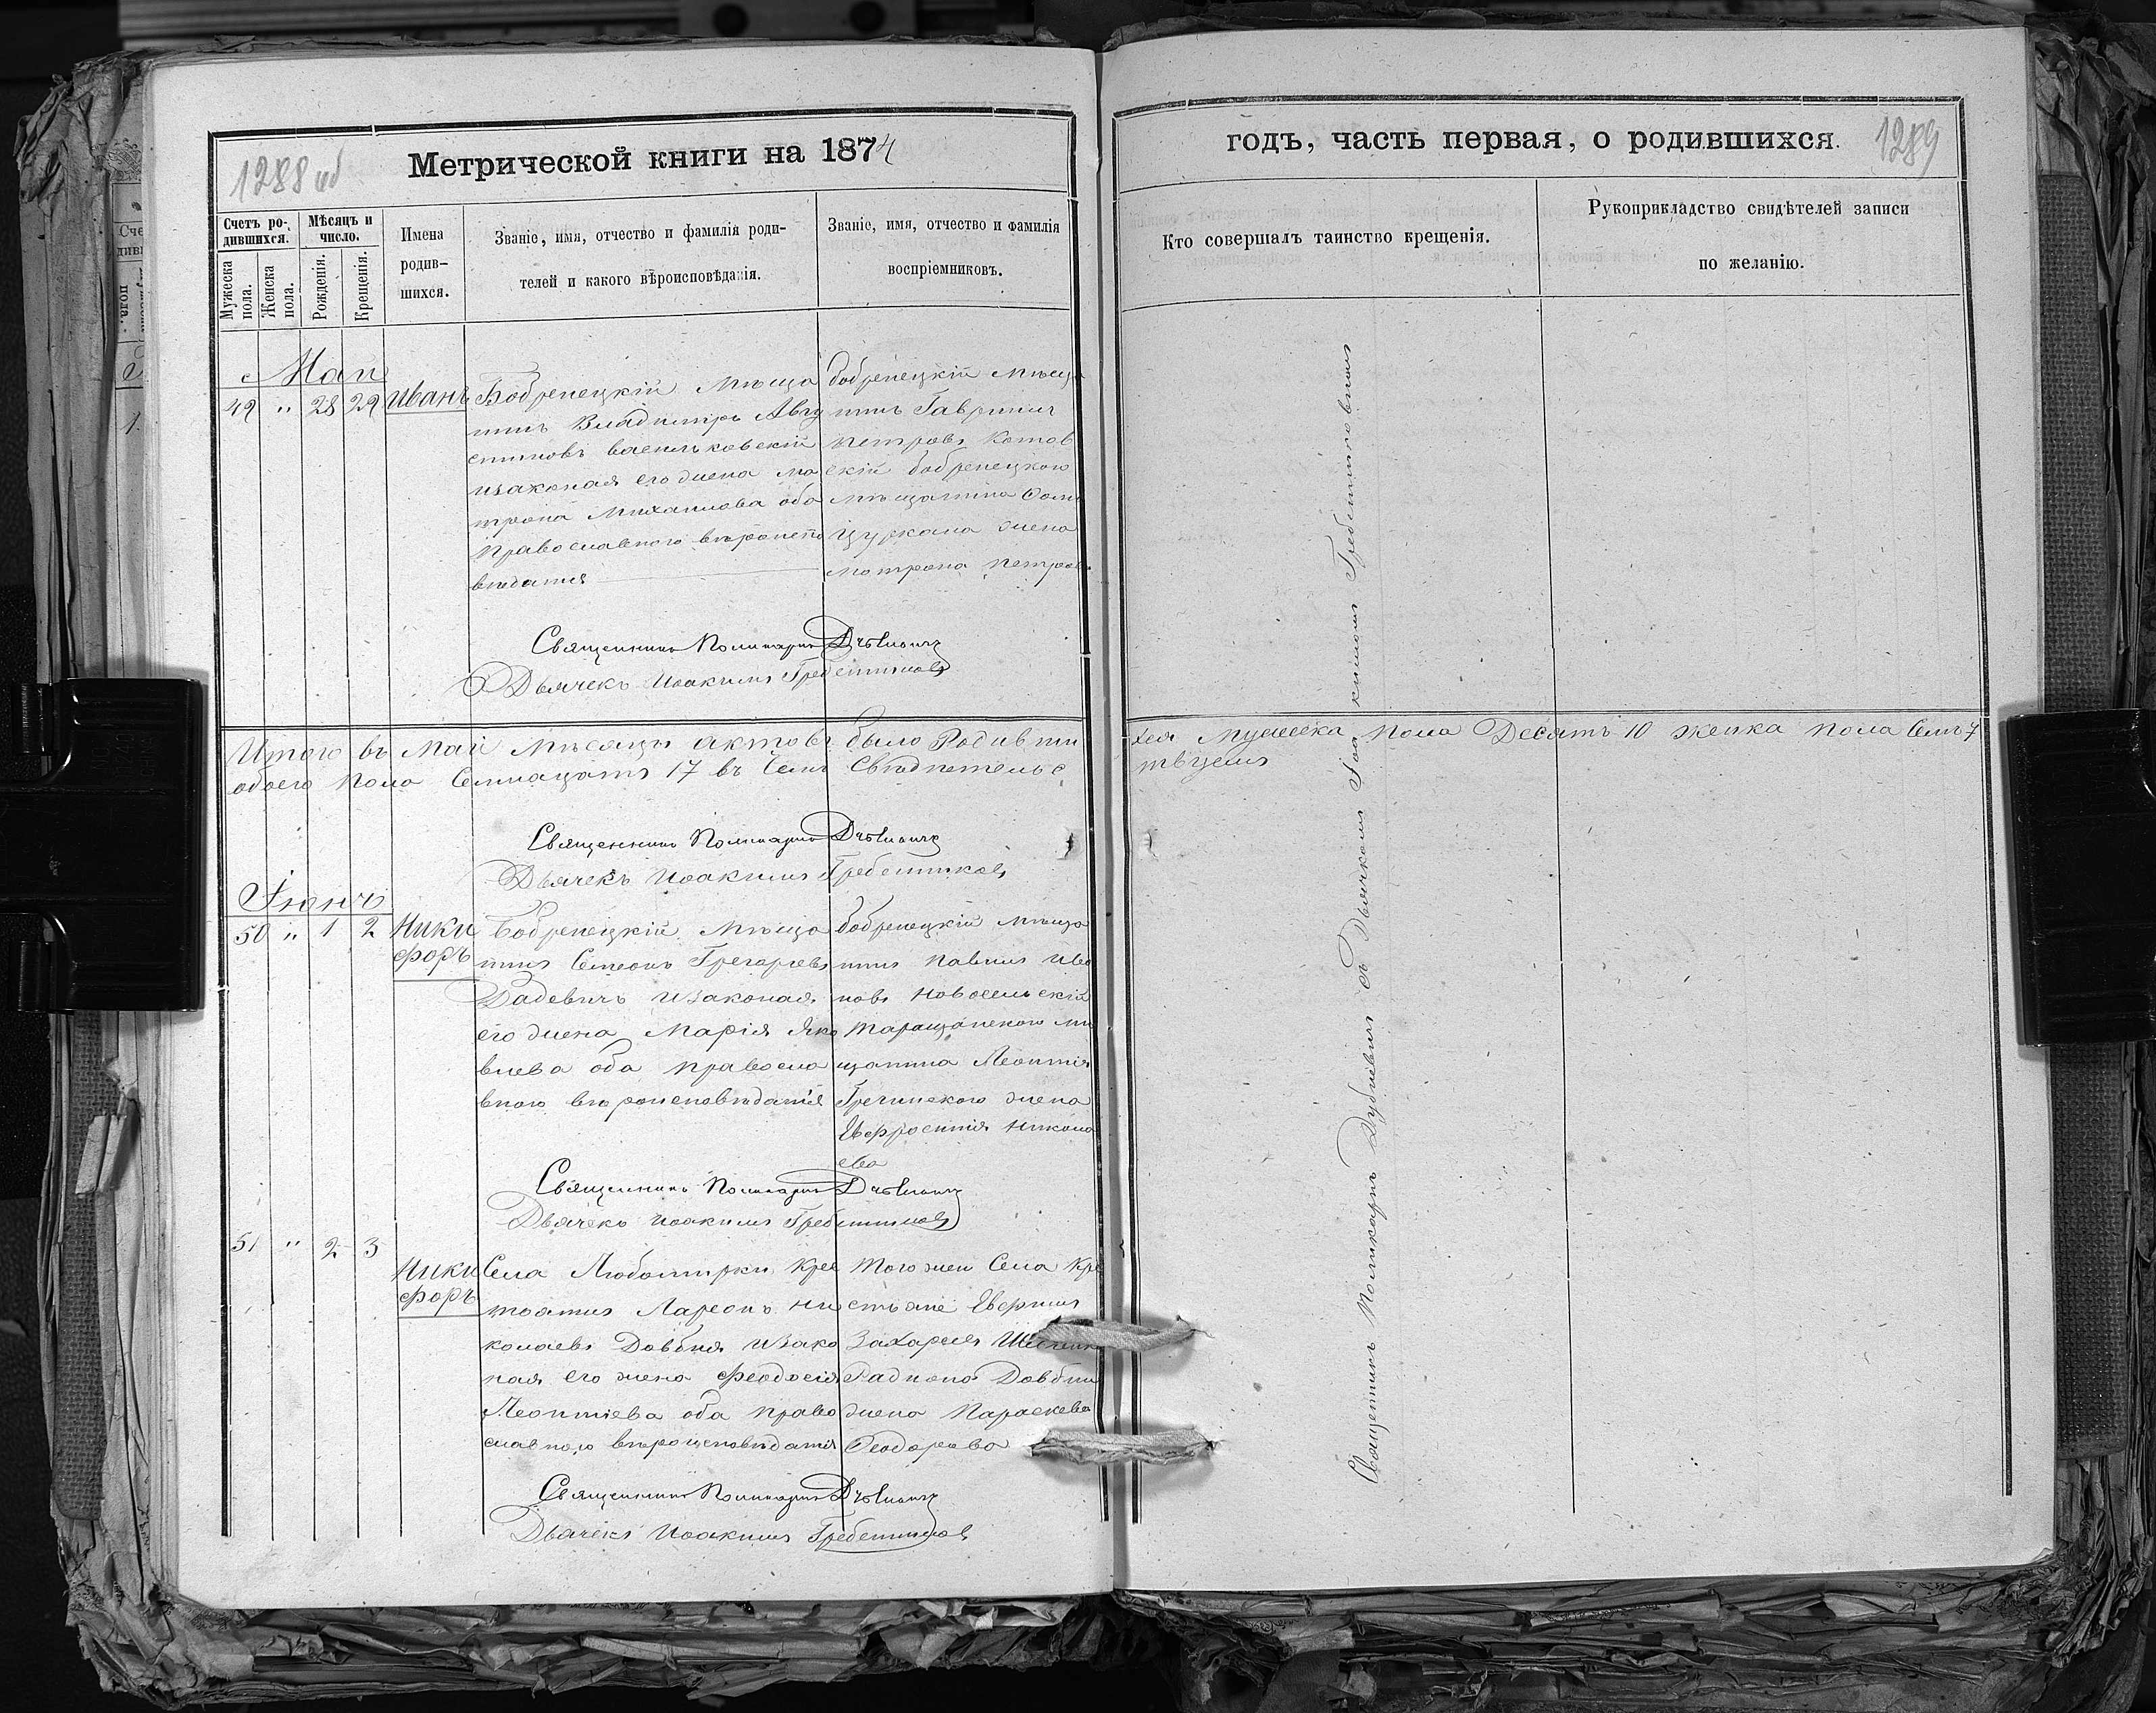 1288 об
Метрической книги на 1874
Счетъ ро-
дившихся.
Мѣсяцъ и
число.
Мужеска
пола.
Женска
пола.
Рожденія.
Крещенія.
Имена
родив-
шихся.
Званіе, имя, отчество и фамилія роди-
телей и какого вѣроисповѣданія.
Званіе, имя, отчество и фамилія
воспріемниковъ.
Май
49 " 28 29 Иванъ
Бобренецкій Мѣща
нинъ Владимиръ Авгу
стиновъ Васильковскій
изаконая его жена Ма
трона Михаилова оба
православного вѣроиспо
вѣданія
бобренецкій Мѣща
нинъ Гавриил
Петровъ Котов
скій бобренецкого
мѣщанина Фом
Цуркана жена
Мотрона Петров
Священникъ Поликарпъ
Дьячекъ Иоакимъ Гребенниковъ
Итого въ Маи Мѣсяцы актовъ было Родивши
обоего Пола Семнацать 17 въ чемъ Свидѣтельс
Священникъ Поликарпъ
Дьячекъ Иоакимъ Гребенниковъ
Іюнь
50 " 1 2 Ники
форъ
Бобренецкій Мѣща
нинъ Семеонъ Грегорьевъ
Бадевичъ изаконая
его жена Марія Яко
влева оба правосла
вного вѣроисповѣданія
бобренецкій Мѣща
нинъ Павилъ Ива
новъ Новосельскій
Таращанского мѣ
щанина Леонтія
Гречинского жена
Евфросинія Никола
ева
Священникъ Поликарпъ
Дьячекъ Иоакимъ Гребенниковъ
51 " 2 3
Ники
форъ
Села Любомирки Крес
тоянинъ Лареонъ Ни
колаевъ Довбня изако
ная его жена Феодосія
Леонтіева оба право
славного вѣроисповѣданія
Того жеи Села Кре
стьяне Евфимъ
Захарьевъ
Радиона Довбни
жена Параскева
Феодорова
Священникъ Поликарпъ
Дьячекъ Иоакимъ Гребенниковъ
1289
годъ, часть первая, о родившихся.
Кто совершалъ таинство крещенія.
Рукоприкладство свидѣтелей записи
по желанію.
хся Мужеска Пола Десять 10 женка Пола Семь 7
твуемъ
Священникъ Поликарпъ съ Дьячкомъ Іоакимомъ Гребенниковымъ